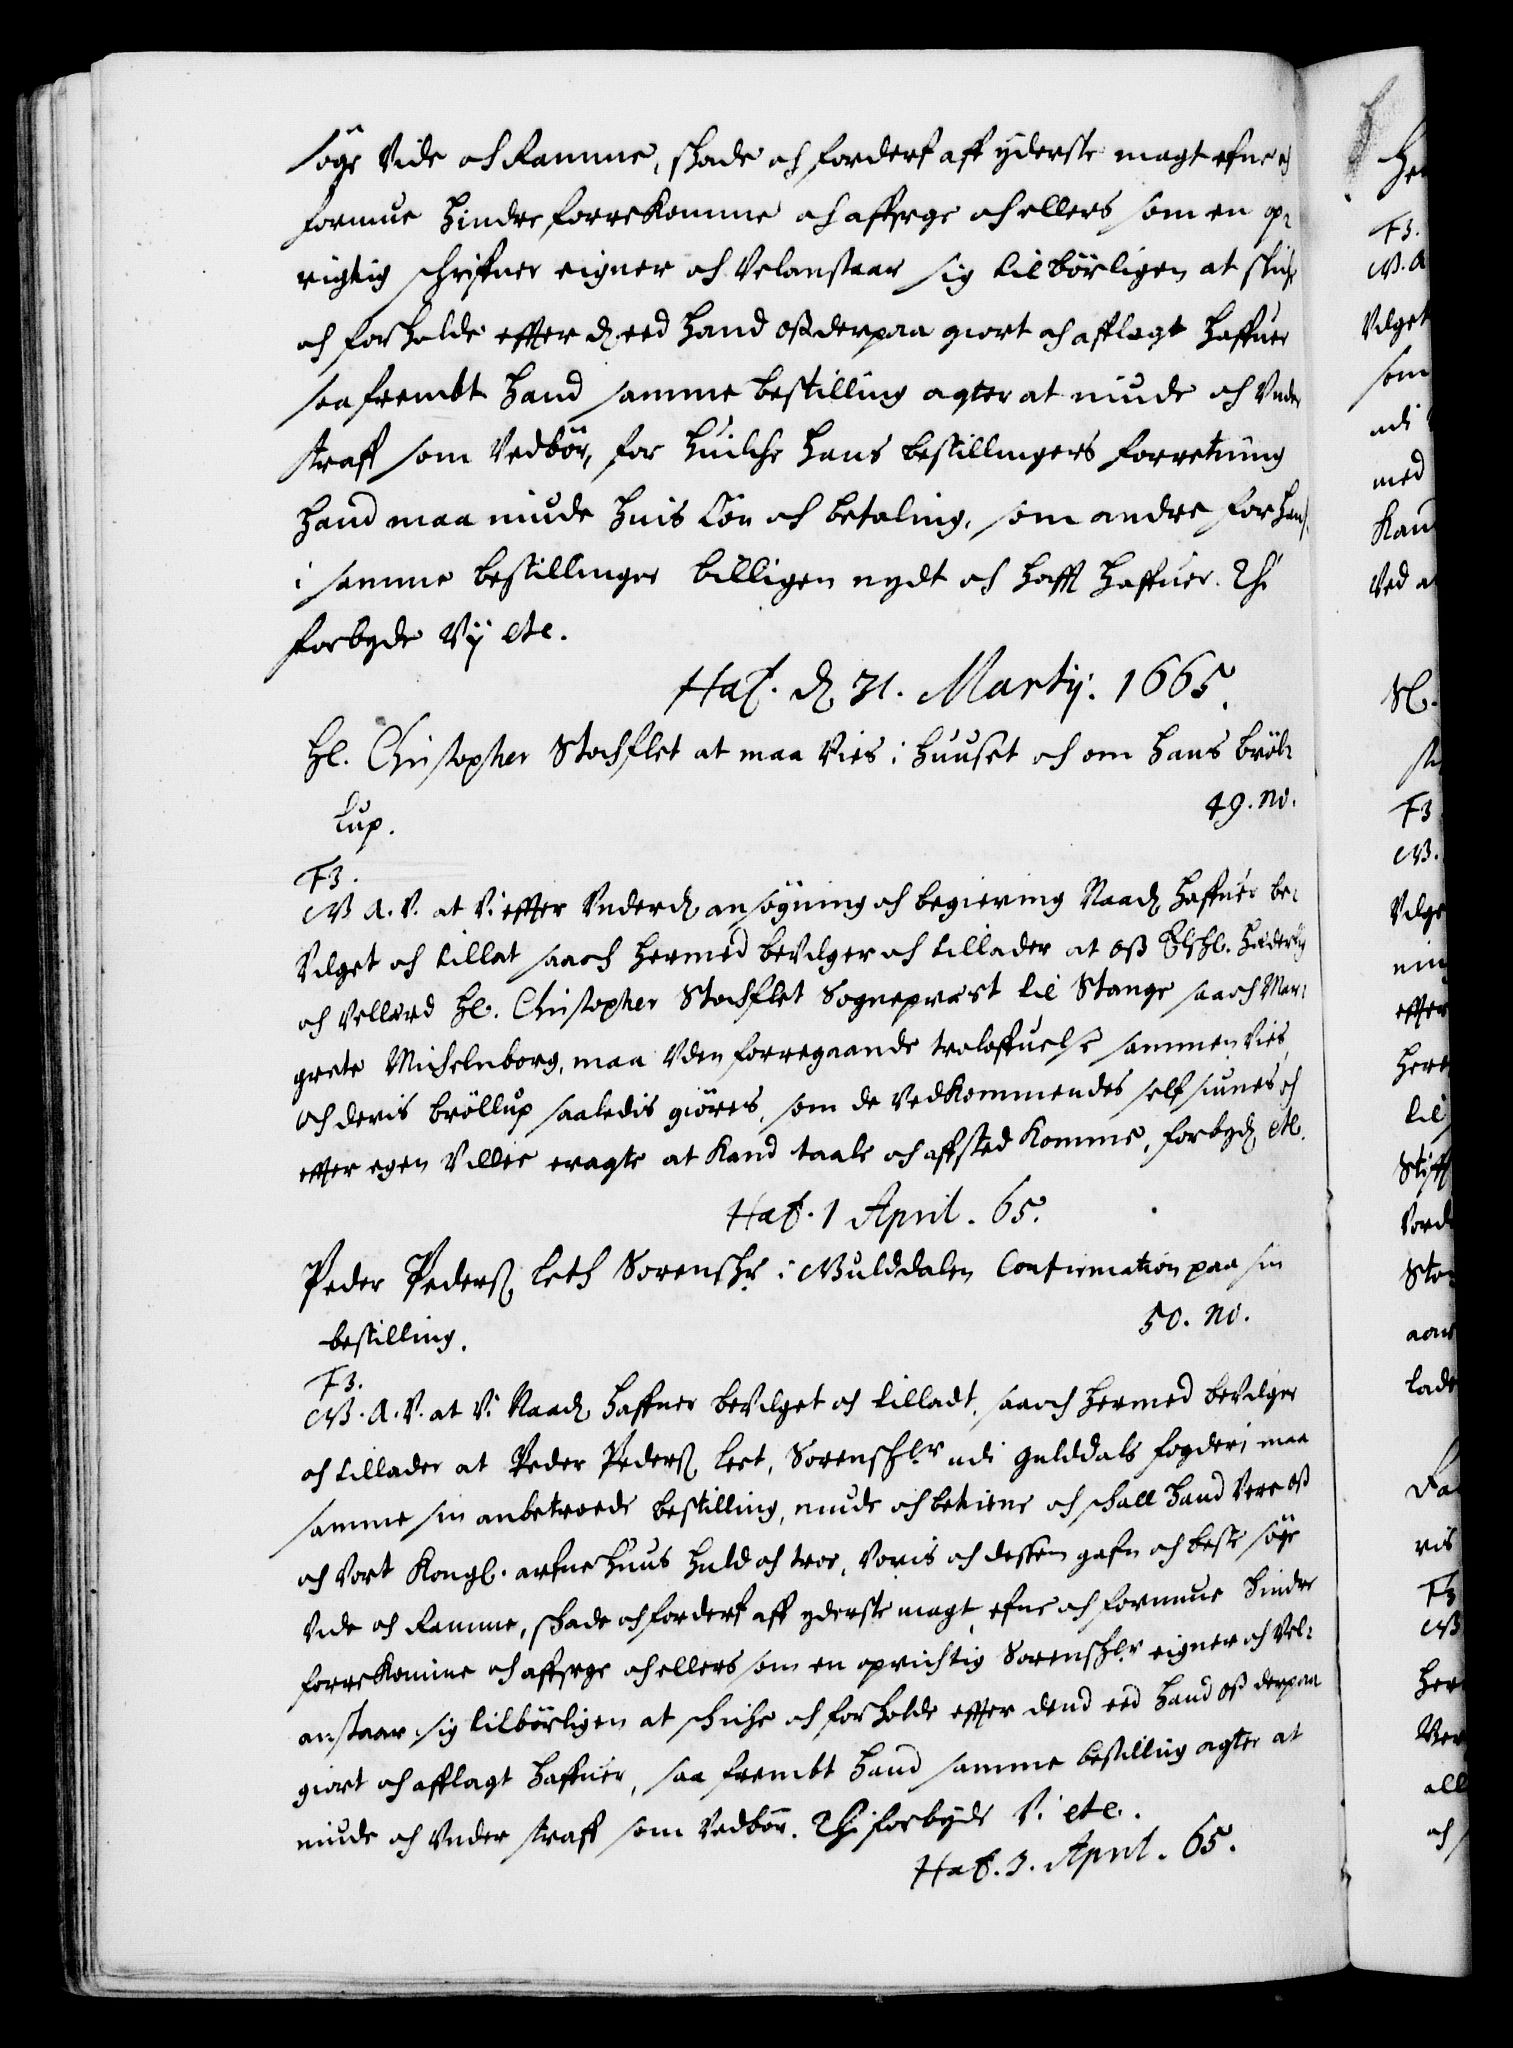 søge Vide och Ramme, skade och forderf aff yderste magt efne och
formue hindre forrekomme och affverge och ellers som en op-
rigtig schrifuer eigner och Velanstaar sig tilbörligen at skiche
och forholde effter d. eed hand oss derpaa giort och afflagt haffuer
saa frembt hand samme bestilling agter at niude och Vnder
straff som Vedbör, for huilche hans bestillingers forretning
hand maa niude huis Lön och betaling, som andre for ham
i samme bestillinger billigen nydt och hafft haffuer. Thi
forbyde Vij etc.
Haf. d. 31. Martij. 1665.
Hl. Christopher Stochflet at maa Vies i huuset och om hans bröl-
lup.
49. no.
F3.
G. A. V. at Vi effter Vnderd. ansögning och begiering Naad. haffuer be-
Vilget och tillat saa och hermed beVilger och tillader at oss Elschl. Hæderlig
och Vellærd Hl. Christopher Stochflet Sognepræst til Stange saa och Mar-
grete Michelnborg, maa Vden forregaande troloffuelse sammen Vies,
och deris bröllup saaledis giöres, som de Vedkommendes self siunes och
effter egen Villie eragte at kand taale och affsted komme, forbyd. etc.
Haf. 1 April. 65.
Peder Peders. Leth Sorenschr. i Guldalen Confirmation paa sin
bestilling.
50. no.
F3.
G. A. V. at Vi Naad. haffuer beVilget och tilladt, saa och hermed beVilger
och tillader at Peder Peders. Leet, Sorenschr. udi Guldals fogderi maa
samme sin anbetroede bestilling, niude och betiene och schall hand Vere oss
och Vort Kongl. arfuehuus huld och troe, Voris och dessen gafn och beste söge
Vide och Ramme, skade och forderf aff yderste magt efne och formue hindre
forrekomme och affverge och ellers som en oprichtig Sorenschr. eigner och Vel-
anstaar sig tilbörligen at schiche och forholde effter dend eed hand oss derpaa
giort och afflagt haffuer, saa frembt hand samme bestilling agter at
niude och Vnder straff som Vedbör. Thi forbyde Vi etc.
Haf. 3. April. 65.